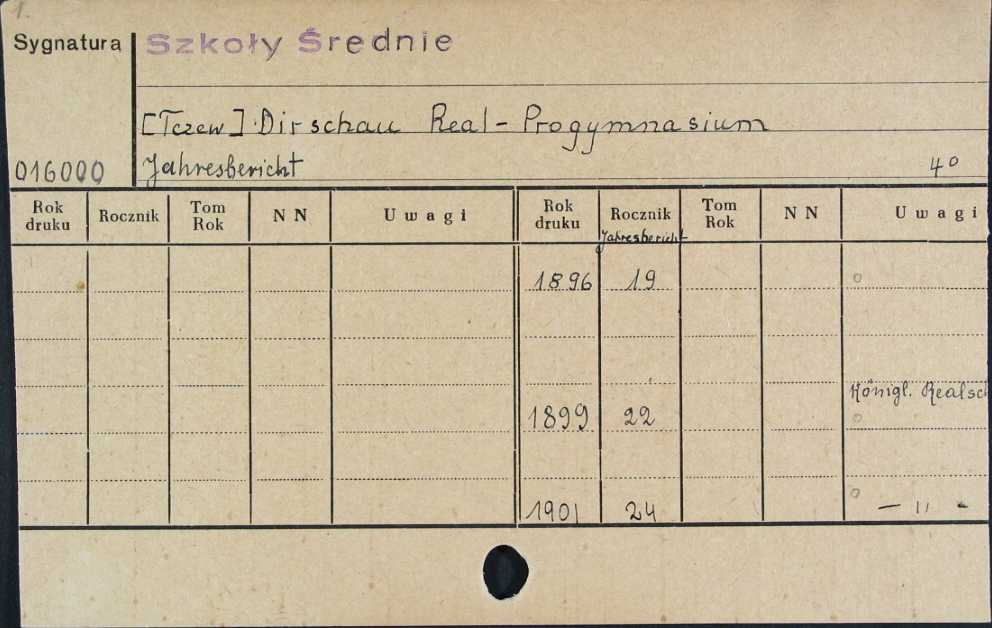 1.
Sygnatura Szkoły Średnie
[Tczew] Dirschau Real-Progymnasium
016000 Jahresbericht 4°
Rok druku Rocznik Tom Rok N N Uwagi Rok druku Rocznik Tom Rok N N Uwagi
Jahresbericht
1896 19 o
Königl. Realsch
1899 22 o
1901 24 o — " -